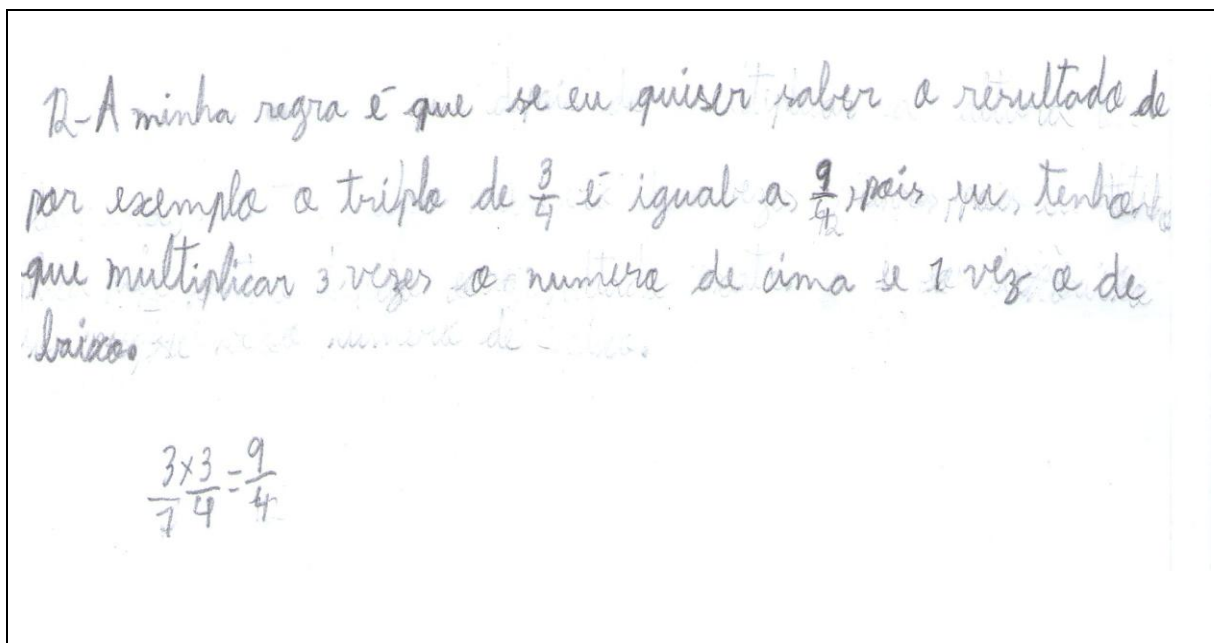 R-A minha regra é que se eu quiser saber o resultado de
por exemplo o triplo de 3/4 é igual a 9/4, pois eu tenho
que multiplicar 3 vezes o numero de cima e 1 vez o de
baixo.
3/1 × 3/4 = 9/4